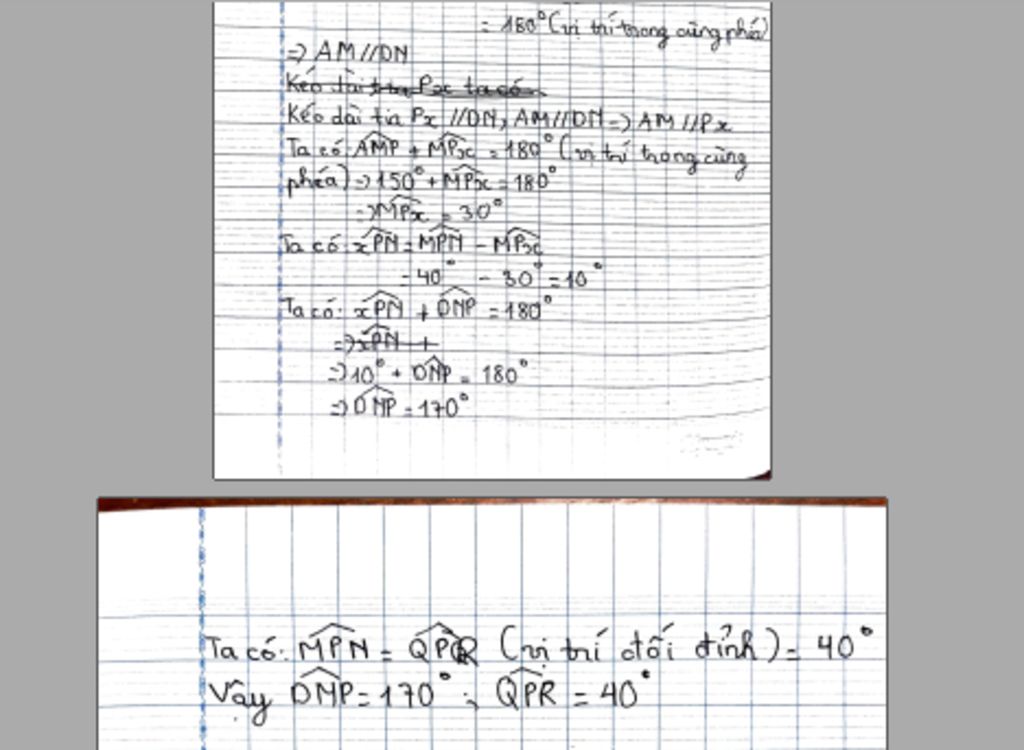 = 180° (vị trí trong cùng phía)
=> AM//DN
Kéo dài tia Px ta có
Kéo dài tia Px //DN, AM//DN => AM//Px
Ta có: AMP + MPx = 180° (vị trí trong cùng
phía) => 150° + MPx = 180°
=> MPx = 30°
Ta có: xPN = MPN - MPx
= 40° - 30° = 10°
Ta có: xPN + DNP = 180°
=> xPN +
=> 10° + DNP = 180°
=> DNP = 170°
Ta có: MPN = QPR (vị trí đối đỉnh) = 40°
Vậy DNP = 170° ; QPR = 40°